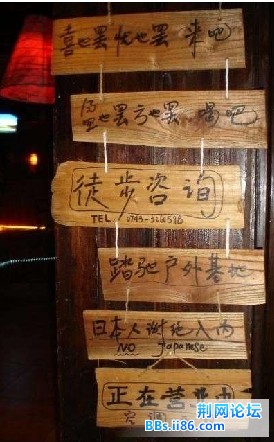 喜也罢忧也罢 来吧
盈也罢亏也罢 喝吧
徒步咨询
TEL
踏驰户外基地
日本人谢绝入内
NO Japanese
正在营业中
空调
荆网论坛
BBs.ii86.com